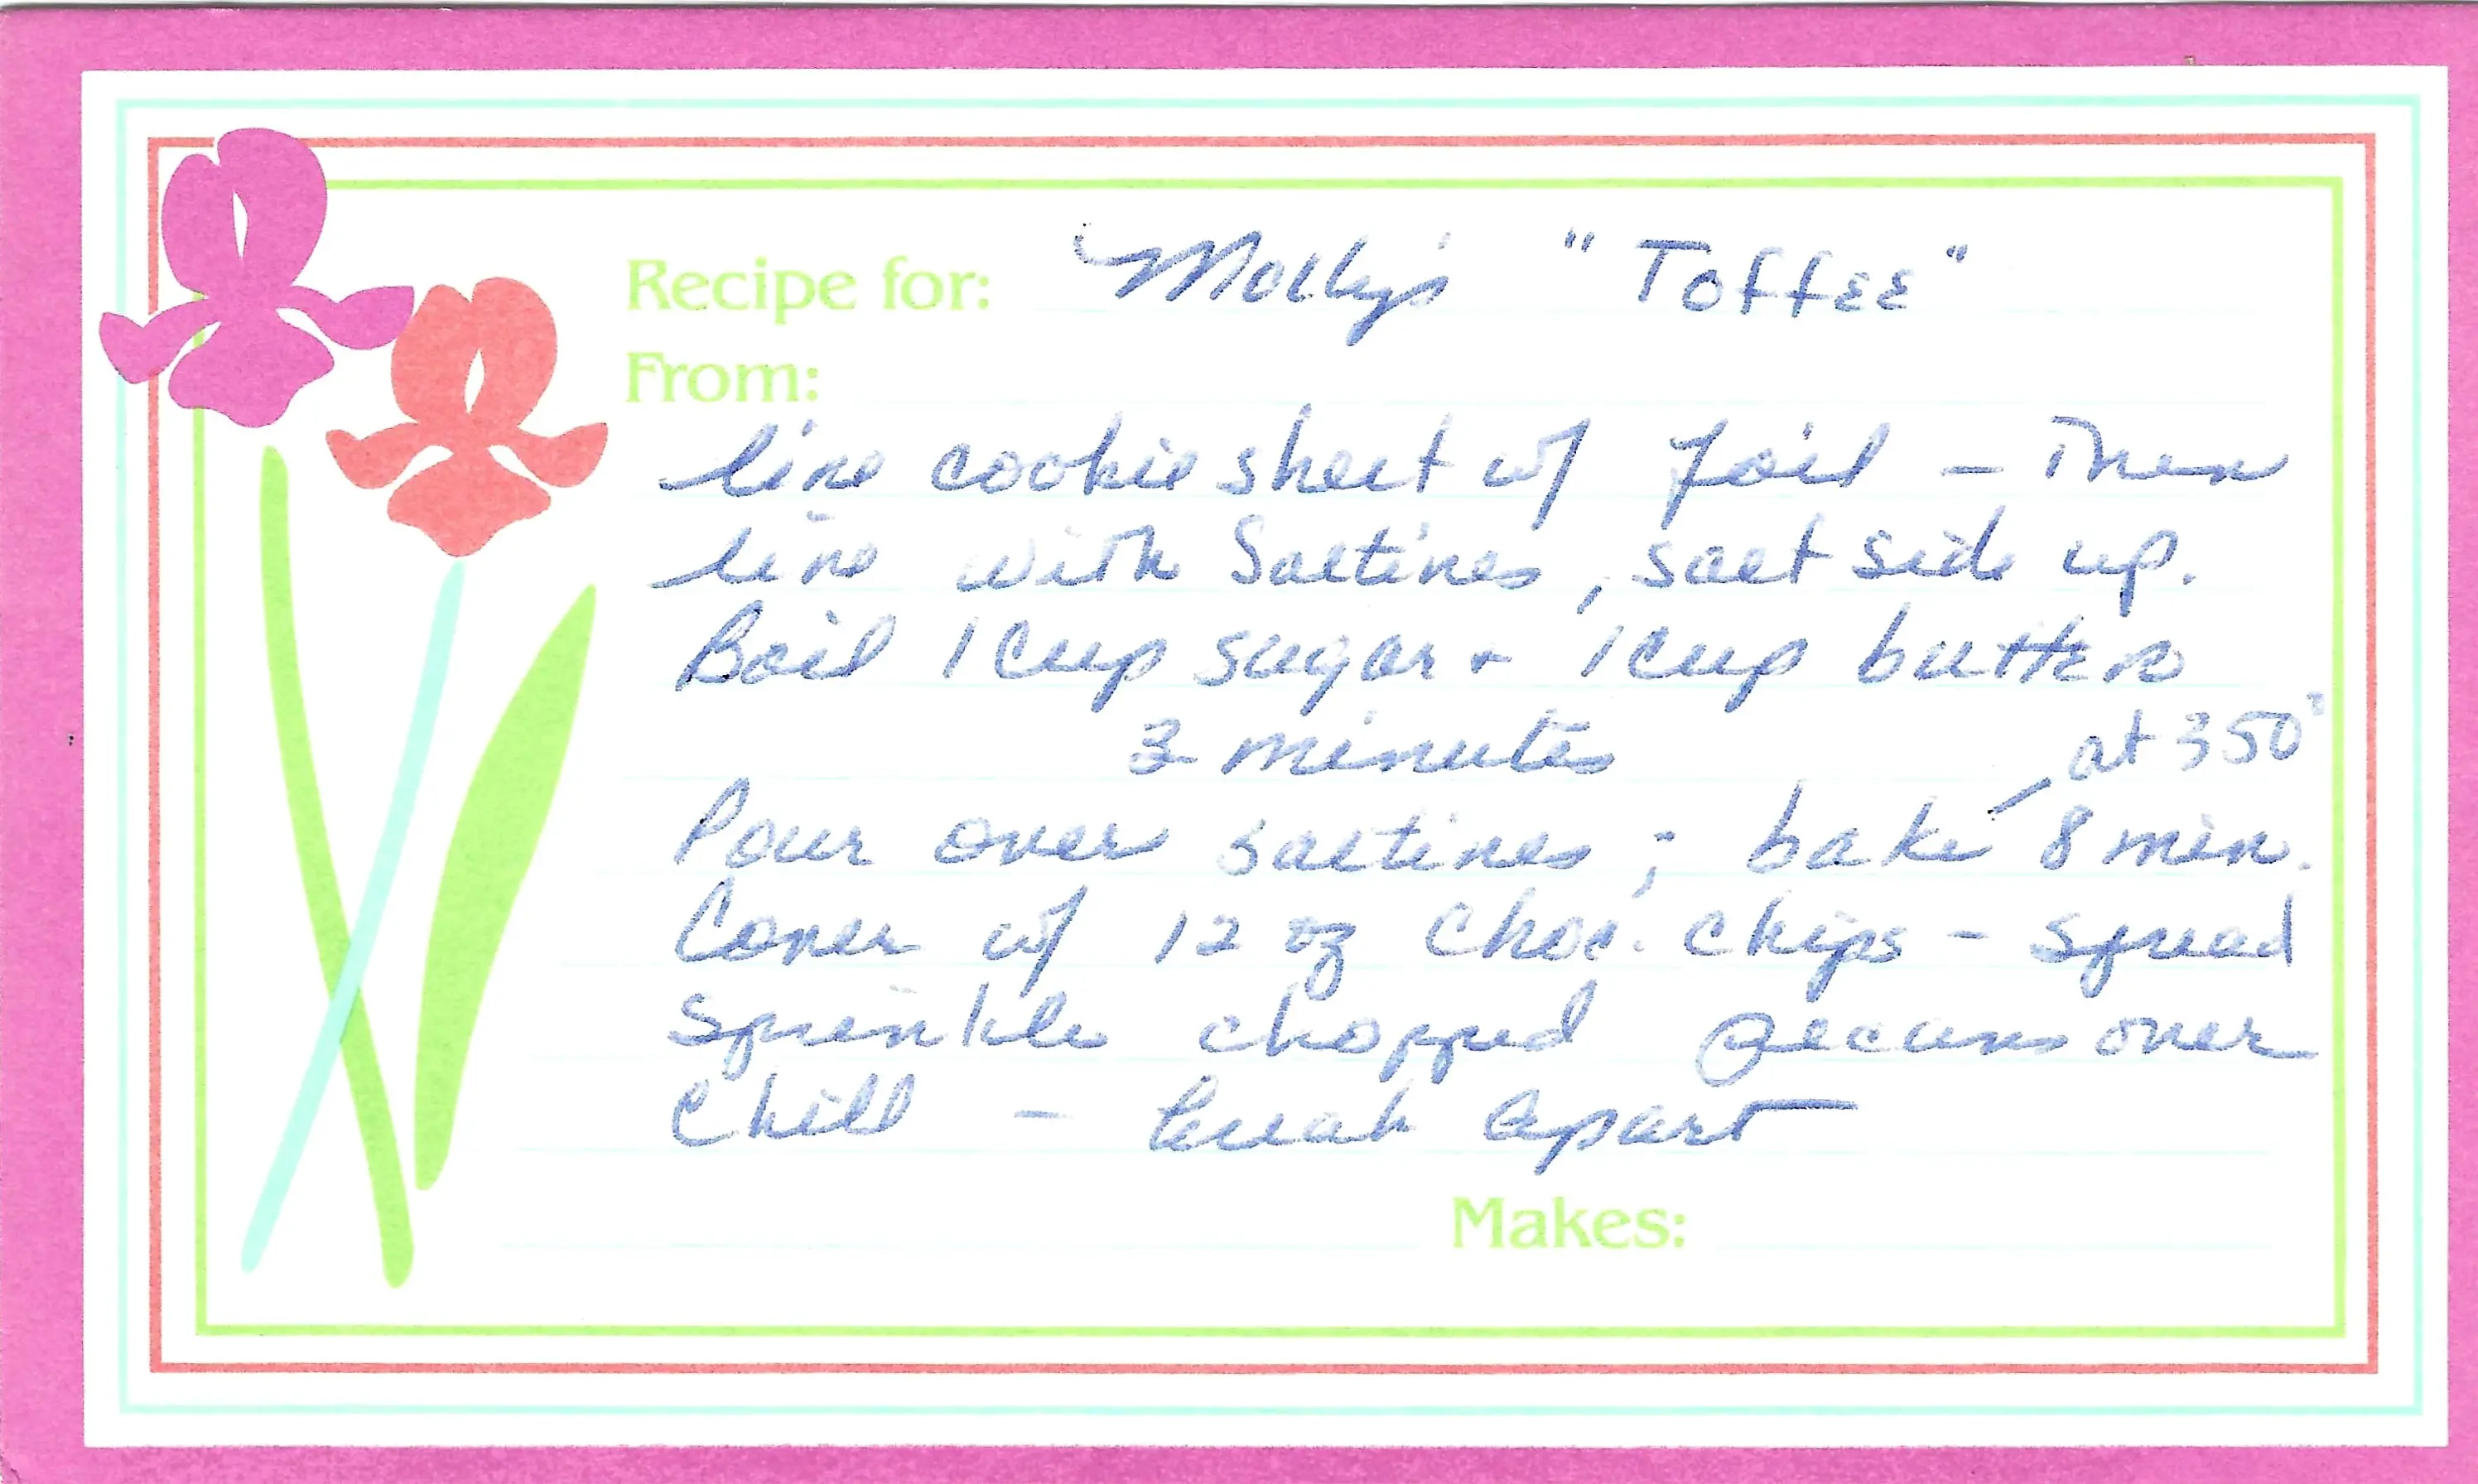 Recipe for: Molly's "Toffee"
From:
line cookie sheet w/ foil – Then
line with Saltines, salt side up.
Boil 1 cup sugar + 1 cup butter
3 minutes at 350°
Pour over saltines; bake 8 min.
Cover w/ 12 oz choc. chips – spread
Sprinkle chopped pecans over
Chill – break apart
Makes: